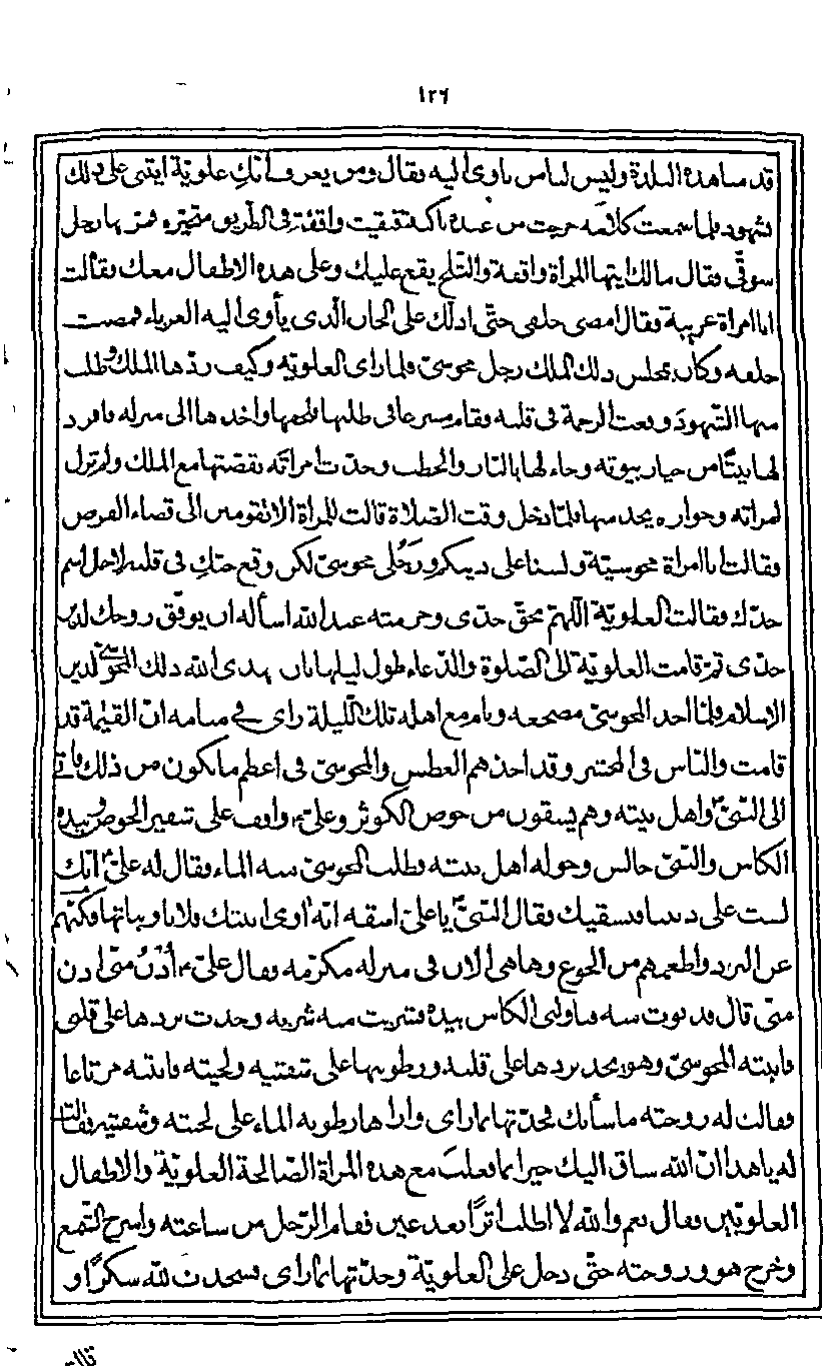 ١٢٦
قد مناهذه البلدة وليس لنا من ناوى اليه فقال ومن يعرف أنك علوية ايتنى على ذلك
بشهود فلما سمعت كلامه خرجت من عنده باكية فبقيت واقفة في الطريق متحيره فمر بها رجل
سوقى فقال مالك ايتها المرأة واقفة والثلج يقع عليك وعلى هذه الاطفال معك فقالت
انا امرأة غريبة فقال امضى خلفى حتى ادلك على الخان الذى يأوى اليه الغرباء فمضت
خلفه وكان بمجلس ذلك الملك رجل مجوسى فلما راى العلويه وكيف ردها الملك وطلب
منها الشهود وقعت الرحمة فى قلبه فقام مسرعا فى طلبها فلحقها واخذها الى منزله فافرد
لها بيتا من خيار بيوته وجاء لها بالنار والحطب وحدث امراته بقصتها مع الملك ولم تزل
امراته وجواره يخدمنها فلما دخل وقت الصلاة قالت للمراة الا تقومين الى قضاء الفرض
فقالت انا امراة مجوسية ولسنا على دينكم ورجلى مجوسى لكن وقع حبك فى قلبه لاجل اسم
جدك فقالت العلوية اللهم بحق جدى وحرمته عند الله اسأله ان يوفق زوجك لدين
جدى ثم قامت العلوية الى الصلوة والدعاء طول ليلها بان يهدى الله ذلك المجوسى لدين
الاسلام فلما اخذ المجوسى مضجعه ونام مع اهله تلك الليلة راى في منامه ان القيمة قد
قامت والناس فى المحشر وقد اخذهم العطش والمجوسى فى اعظم ما يكون من ذلك فاتى
الى النبى واهل بيته وهم يسقون من حوض الكوثر وعلى واقف على شفير الحوض وبيده
الكاس والنبى جالس وحوله اهل بيته فطلب المجوسى منه الماء فقال له على انك
لست على ديننا فنسقيك فقال النبى يا على اسقه انه آوى ابنتك فلانا وبناتها فكنهم
عن البرد واطعمهم من الجوع وها هى الان فى منزله مكرمه فقال على ادن منى ادن
منى قال فدنوت منه فناولنى الكاس بيده فشربت منه شربه وجدت بردها على قلبى
فانتبه المجوسى وهو يجد بردها على قلبه ورطوبتها على شفتيه ولحيته فانتبه مرتاعا
فقالت له زوجته ما شأنك فحدثها بما راى واراها رطوبه الماء على لحيته وشفتيه فقالت
له يا هذا ان الله ساق اليك خيرا بما فعلت مع هذه المراة الصالحة العلوية والاطفال
العلويين فقال نعم والله لا اطلب اثرا بعد عين فقام الرجل من ساعته واسرج الشمع
وخرج هو وزوجته حتى دخل على العلوية وحدثها بما راى فسجدت لله شكرا و
قالت